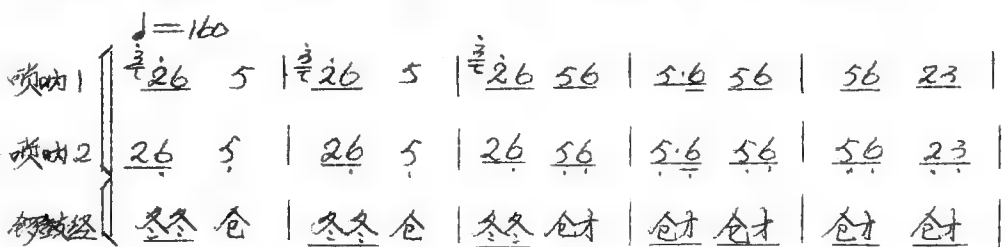 ♩=160
唢呐1 3 2̇6 5 | 3 2̇6 5 | 3 2̇6 56 | 5·6 56 | 56 23 |
唢呐2 26̣ 5̣ | 26̣ 5̣ | 26̣ 5̣6̣ | 5̣·6̣ 5̣6̣ | 5̣6̣ 2̣3̣ |
锣鼓经 冬冬 仓 | 冬冬 仓 | 冬冬 仓才 | 仓才 仓才 | 仓才 仓才 |